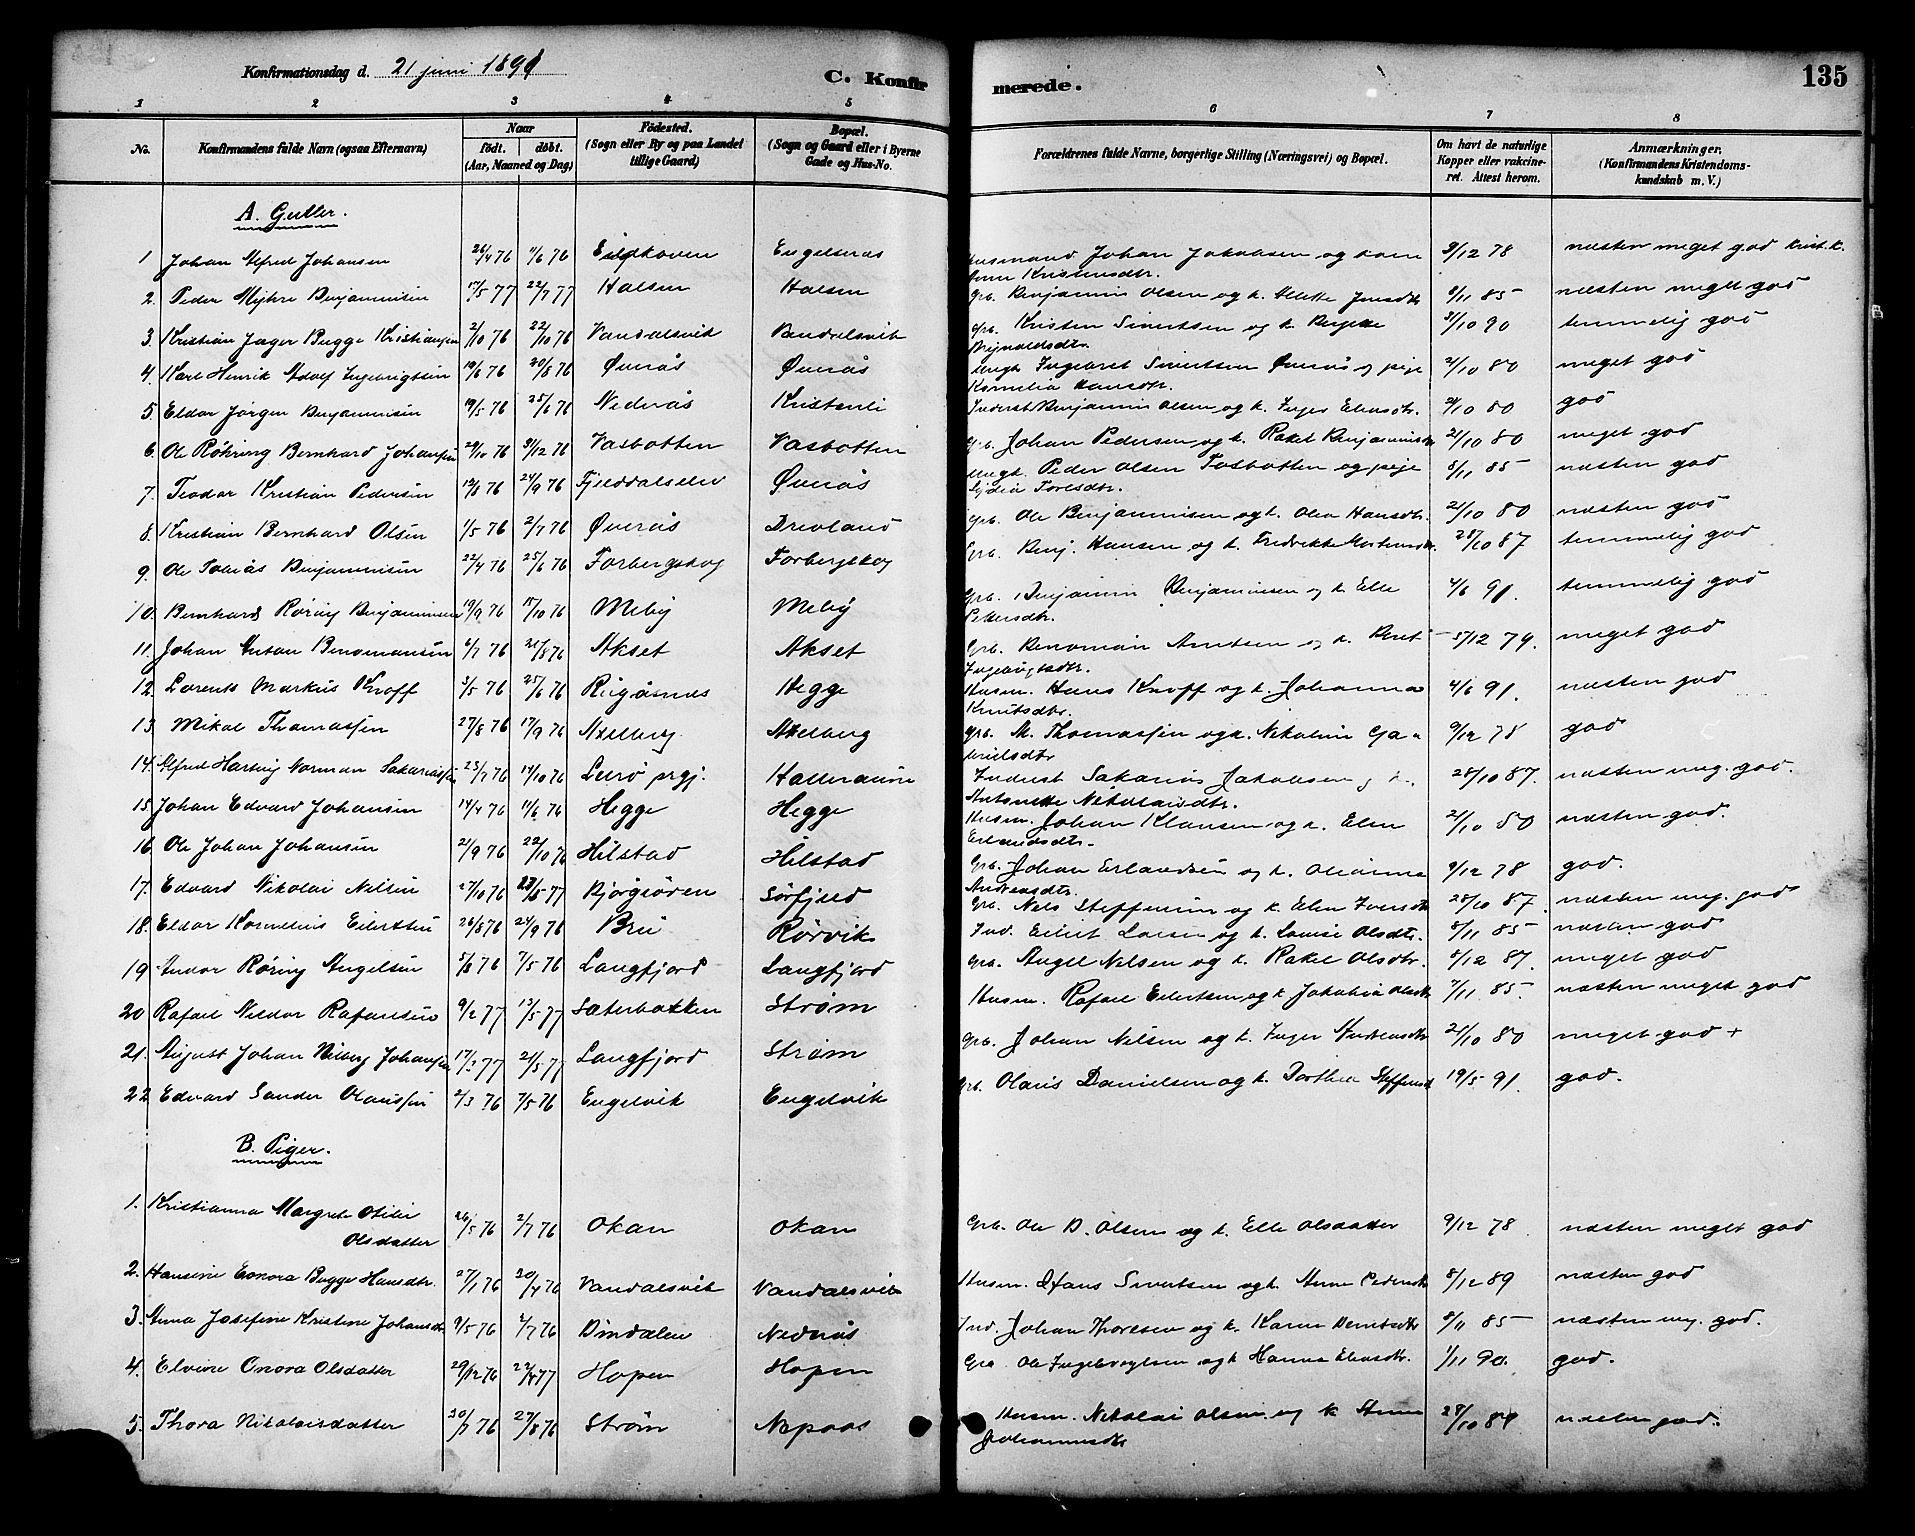 Konfirmationsdag d. 21 juni 1891
C. Konfirmerede.
135
1 2 3 4 5 6 7 8
No.
Konfirmandens fulde Navn (ogsaa Efternavn)
Naar
födt. döbt.
(Aar, Maaned og Dag)
Födested.
(Sogn eller By og paa Landet
tillige Gaard)
Bopæl.
(Sogn og Gaard eller i Byerne
Gade og Hus-No.
Forældrenes fulde Navne, borgerlige Stilling (Næringsvei) og Bopæl.
Om havt de naturlige
Kopper eller vakcine-
ret. Attest herom.
Anmærkninger.
(Konfirmandens Kristendoms-
kundskab m. V.)
A. Gutter.
1 Johan Alfred Johansen 26/4 76 11/6 76 Engelsnæs Husmand Johan Jakobsen og kone 9/12 78 næsten meget god Krist.k.
2. Peder Myhre Benjaminsen 17/5 77 22/7 77 Halsen Halsen Grb. Benjamin Olsen og k. 8/11 85 næsten meget god
3. Kristian Jager Bugge Kristiansen 2/10 76 22/10 76 Vandalsvik Vandalsvik grb. Kristen Sivertsen og k. 3/10 90 temmelig god
4. Karl Henrik Adolf Ingebrigtsen 19/6 76 20/8 76 Øverås Øverås Ungk. Sivertsen Øverås og pige 21/10 80 meget god
Kornelia Hansdtr.
5. Eldor Jørgen Benjaminsen 19/5 76 25/6 76 Nedrås Kristenli Inderst Benjamin Olsen og k. Inger 21/10 80 god
6. Ole Röhring Bernhard Johansen 29/10 76 31/12 76 Vasbotten Vasbotten grb. Johan Pedersen og k. Rakel Benjaminsdtr 21/10 80 meget god
7. Teodor Kristian Pedersen 12/8 76 24/9 76 Øverås Ungk. Peder Olsen Fosbotten og pige 8/11 85 næsten god
Toresdtr.
8. Kristian Bernhard Olsen 1/5 76 2/7 76 Øverås Drevland grb. Ole Benjaminsen og k. Olea Hansdtr. 21/10 80 næsten god
9. Ole Tobias Benjaminsen 22/4 76 25/6 76 Forbergskog Forbergskog Grb. Benj. Hansen og k. Fredrikke 28/10 87 temmelig god
10. Bernhard Røring Benjaminsen 19/9 76 17/10 76 Meby Meby grb. Benjamin Benjaminsen og k. Elle 4/6 91. temmelig god
Pettersdtr.
11. Johan Anton Benomansen 6/7 76 20/8 76 Akset Akset grb. Benomian Arntsen og k. Beret 5/12 79. meget god
12. Lorents Markus Knoff 3/5 76 25/6 76 Hegge Husm. Hans Knoff og k. Johanna 4/6 91. næsten god
Knutsdtr.
13. Mikal Thomassen 27/8 76 17/9 76 Axelberg Axelberg grb. M. Thomassen og k. Nikoline Ga- 9/12 78 god
brielsdtr
14. Alfred Hartvig Norman Sakariassen 23/7 76 14/10 76 Lurø prgj. Inderst Sakarias Jakobsen og k. 28/10 87. næsten meg. god.
Antonette Nikolaisdtr.
15. Johan Edvard Johansen 14/4 76 11/6 76 Hegge Hegge Husm. Johan Klausen og k. Elen 21/10 80 næsten god.
Erlandsdtr.
16. Ole Johan Johansen 21/9 76 22/10 76 Hilstad Hilstad Grb. Johan Erlandsen og k. Oleanna 9/12 78 god.
Andreasdtr.
17. Edvard Nikolai Nilsen 27/10 76 23/5 77 Bjørgsören Sørfjeld Grb. Nels Steffensen og k. Elen Iversdtr 28/10 87. næsten meg. god
18. Eldor Kornelius Eilertsen 26/8 76 24/9 76 Bru Rørvik Ind. Eilert Larsen og k. Lovise Olsdtr. 8/11 85 næsten god
19 Andor Røring Angelsen 7/5 76 Langfjord Langfjord grb. Angel Nilsen og k. Rakel Olsdtr. 8/12 87. meget god
20 Rafael Neldor Rafaelsen 9/2 77 13/5 77 Sæterbakken Strøm Husm. Rafael Eilertsen og k. Jakobia Olsdtr 7/11 85. næsten meget god
21. August Johan Johansen 17/3 77 21/5 77 Langfjord Strøm Grb. Johan Nilsen og k. Inger Andreasdtr 21/10 80 meget god +
22 Edvard Sander Olaussen 2/3 76 7/5 76 Engelvik Engelvik Grb. Olaus Danielsen og k. Dorthea Steffensd. 19/5 91. god.
B. Piger.
1. Kristianna Margrete Otilie
Olsdatter 26/5 76 2/7 76 Okan Okan Grb. Ole B. Olsen og k. Elle Olsdatter 9/12 78 næsten meget god
2. Hansine Eonora Bugge Hansdtr. 27/1 76 30/4 76 Vandalsvik Vandalsvik Husm. Hans Sivertsen og k. Anne Pedersdtr 8/12 89 næsten god
3. Anna Josefine Kristine Johansdtr 9/5 76 2/7 76 Dindalen Nedrås Ind. Johan Thoresen og k. Karen Berntsdtr 8/11 85 næsten meg. god.
4. Elvine Onora Olsdatter 29/12 76 22/4 77 Hopen Hopen Grb. Ole Ingebrigtsen og k. Hanna Eliasdtr. 1/11 90. god.
5. Thora Nikolaisdatter 30/7 76 27/8 76 Strøm Husm. Nikolai Olsen og k. Anne 28/10 87 næsten god.
Johannesdtr